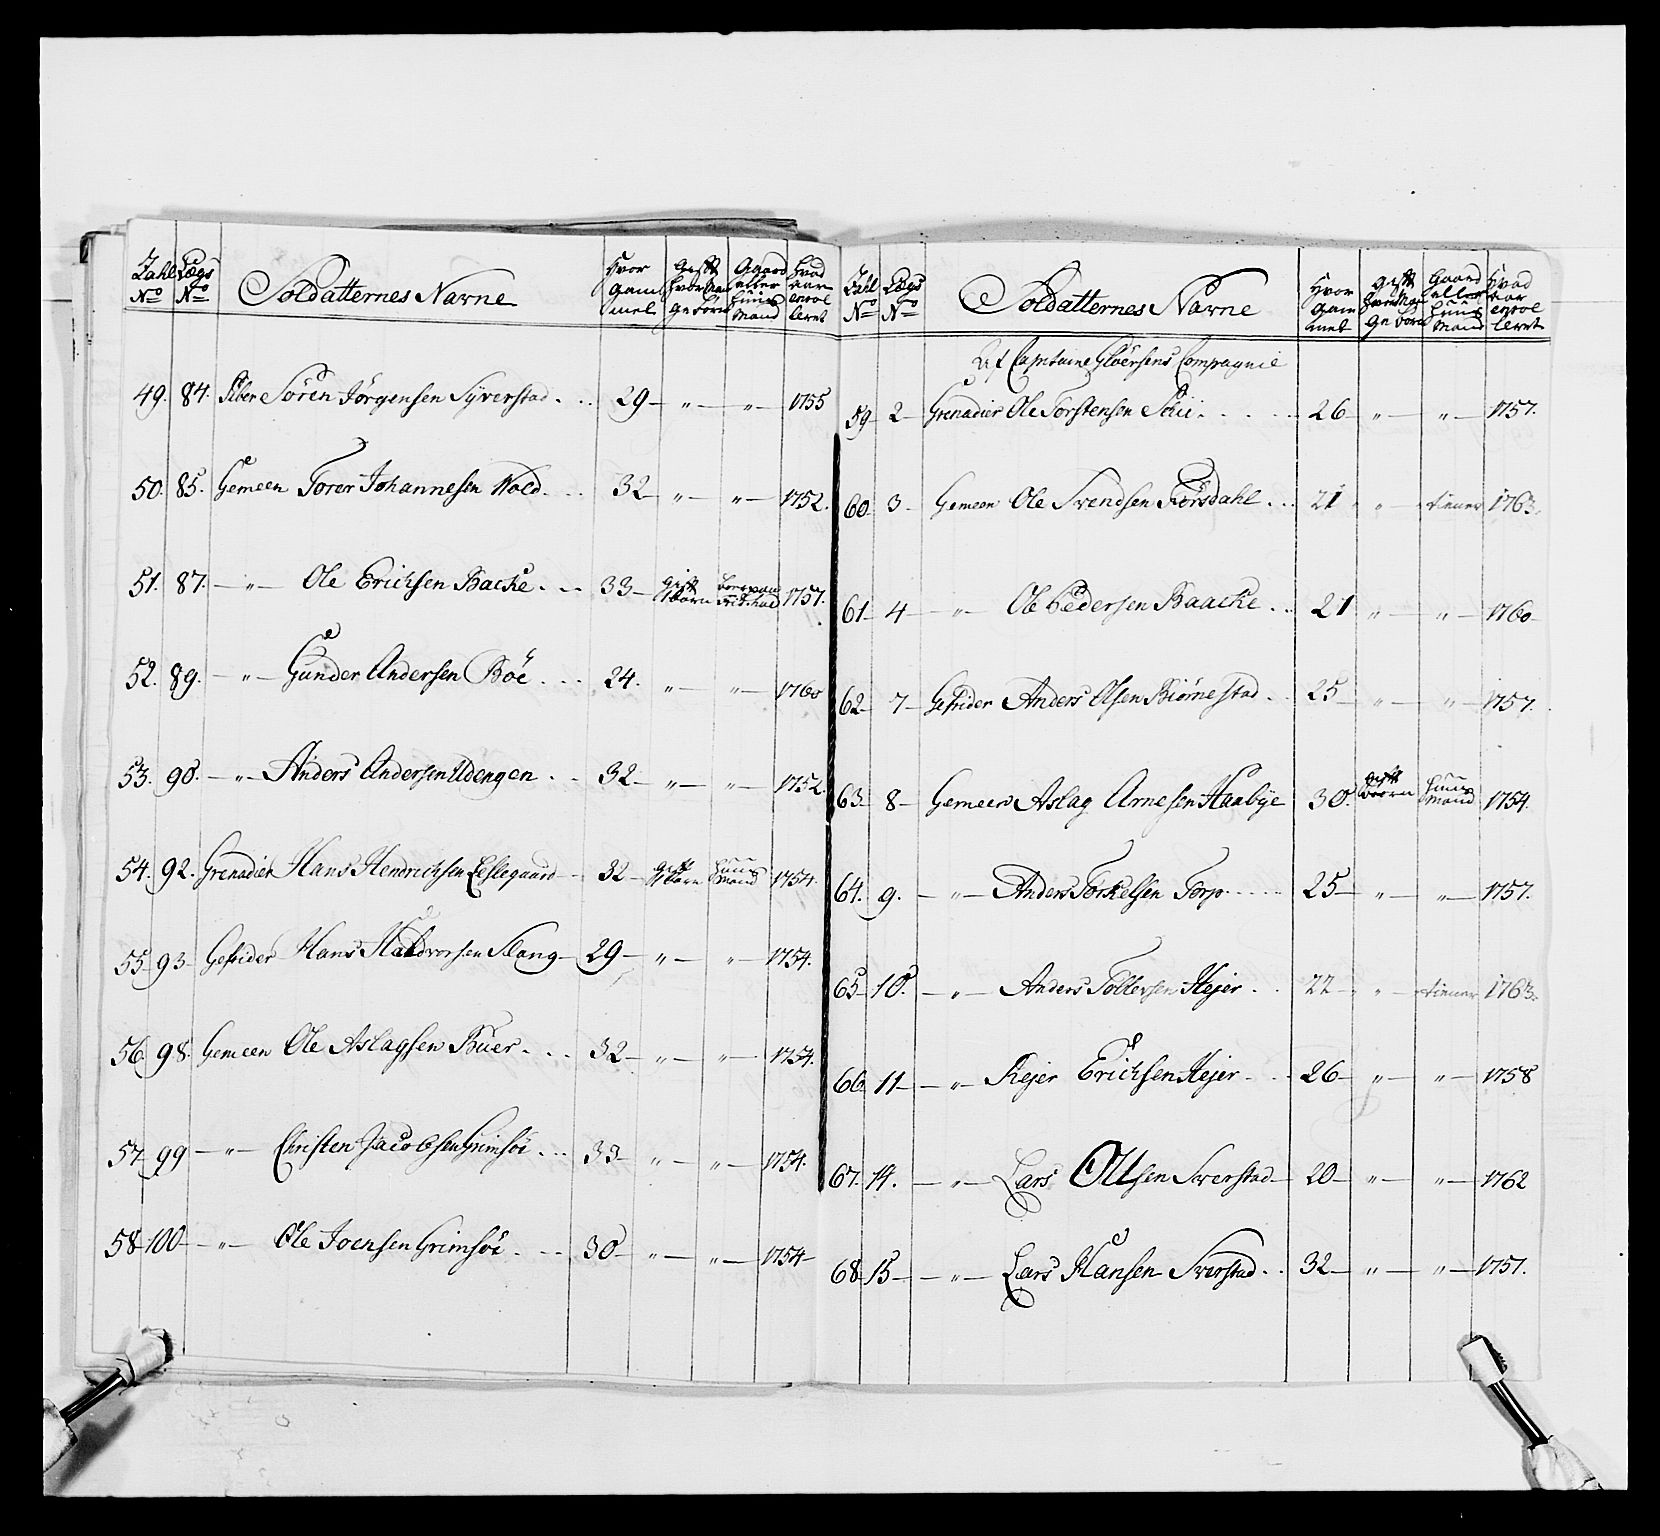 Zahl No | Lægs No | Soldatternes Navne | Hvor gammel | Gift hvor mange børn | Gaard eller Huusmand | Hvad aar enrolleret
49. | 84. | Piber Sören Jörgensen Syverstad | 29 | " | " | 1755
50. | 85. | Gemeen Torer Johannesen Wold | 32 | " | " | 1752.
51. | 87. | " Ole Erichsen Backe | 33 | gift 1 barn | | 1757.
52. | 89. | " Gunder Andersen Böe | 24. | " | " | 1760
53. | 90. | " Anders Andersen Udengen | 32 | " | " | 1752.
54. | 92. | Grenadier Hans Hendrichsen Eslegaard | 32 | gift 1 barn | Huus Mand | 1754.
55 | 93 | Gefrider Hans Haldvorsen Slang | 29 | " | " | 1754.
56 | 98. | Gemeen Ole Aslagsen Buer | 32 | " | " | 1754.
57 | 99 | " Christen Jacobsen Grimsöe | 33 | " | " | 1754.
58 | 100 | " Ole Joensen Grimsöe | 30 | " | " | 1754
Zahl No | Lægs No | Soldatternes Navne | Hvor gammel | Gift hvor mange børn | Gaard eller Huus Mand | Hvad aar enrolleret
Af Capitaine Glöersens Compagnie
59 | 2 | Grenadier Ole Torstensen | 26 | " | " | 1757.
60 | 3 | Gemeen Ole Svendsen Torsdahl | 21 | " | tiener | 1763.
61 | 4 | " Ole Pedersen Baacke | 21 | " | " | 1760
62 | 7 | Gefrider Anders Olsen Biörnestad | 25 | " | " | 1757.
63 | 8 | Gemeen Aslag Arnesen Haabye | 30. | gift børn | Huus Mand | 1754.
64. | 9. | " Anders Torkelsen Torp | 25 | " | " | 1757.
65 | 10. | " Anders Tollevsen Hejer | 22 | " | tiener | 1763.
66 | 11 | " Rejer Erichsen Hejer | 26 | " | " | 1758
67. | 14. | " Lars Ollsen Sverstad | 20 | " | " | 1762
68 | 15 | " Lars Hansen Sverstad | 32 | " | " | 1757.